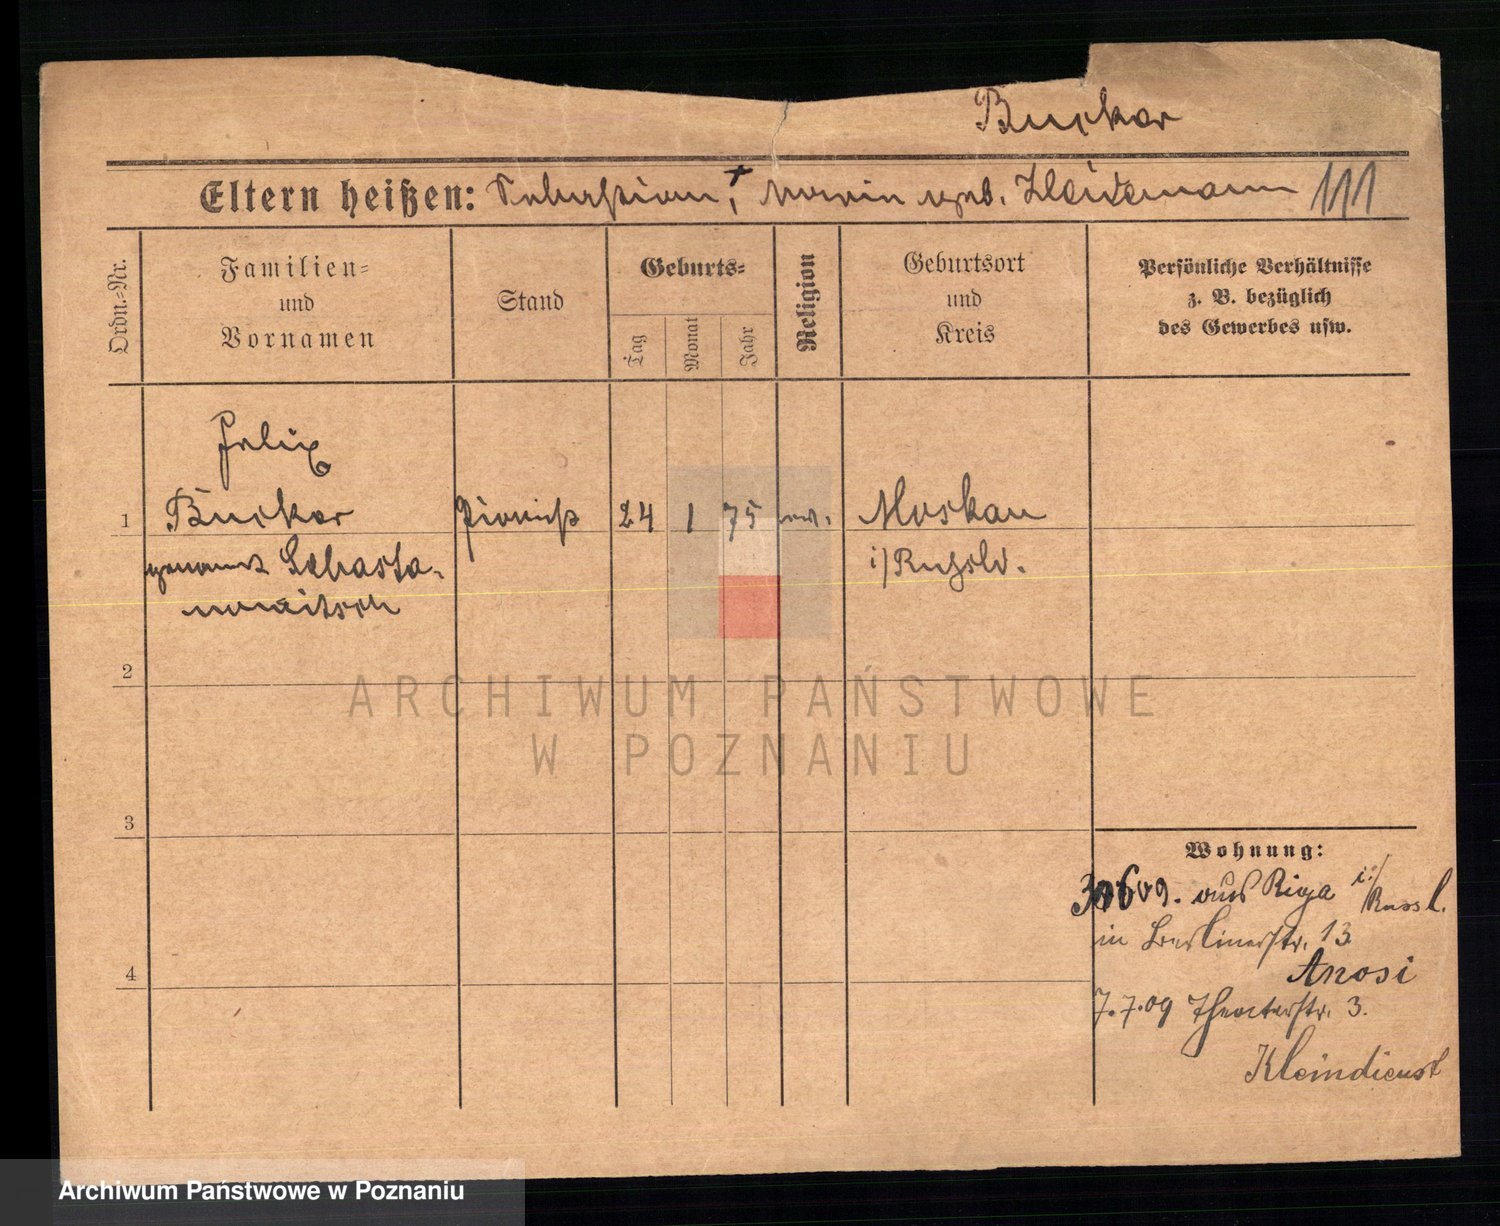 Bucker
Eltern heißen: Sebastian †, Maria geb. Heidemann 111
Ordn.-Nr.
Familien-
und
Vornamen
Stand
Geburts-
Tag
Monat
Jahr
Religion
Geburtsort
und
Kreis
Persönliche Verhältnisse
z. B. bezüglich
des Gewerbes usw.
Felix
1 Bucker Pianist 24 1 75 Moskau
genannt Sebasta- i/Rußld.
nowitsch
2
3
4
Wohnung:
30609. aus Riga i/Russl.
in Berlinerstr. 13
Anosi
7.7.09 Theaterstr. 3.
Kleindienst
ARCHIWUM PAŃSTWOWE
W POZNANIU
Archiwum Państwowe w Poznaniu